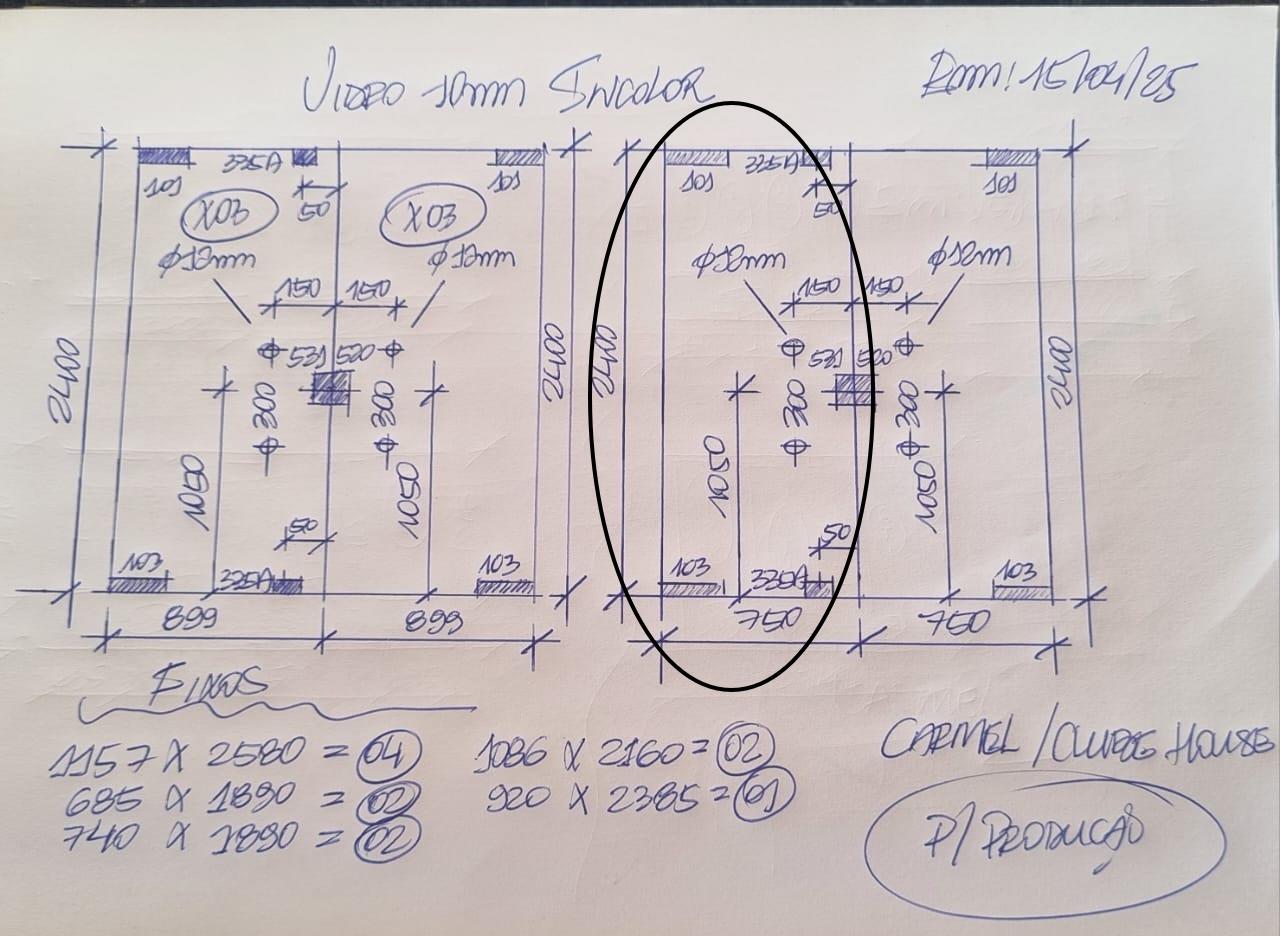 VIDRO 10mm INCOLOR
Em: 15/04/25
335A 335A
101 101 101 101
X03 50 X03 50
φ12mm φ12mm φ12mm φ12mm
150 150 150 150
531 520 531 520
2400 2400 2400 2400
300 300 300 300
1050 1050 1050 1050
50 50
103 335A 103 103 335A 103
899 899 750 750
FIXOS
1157 X 2580 = 04
1086 X 2160 = 02
685 X 1890 = 02
920 X 2385 = 01
740 X 1890 = 02
CARMEL / CLUBE HOUSE
P/ PRODUÇÃO